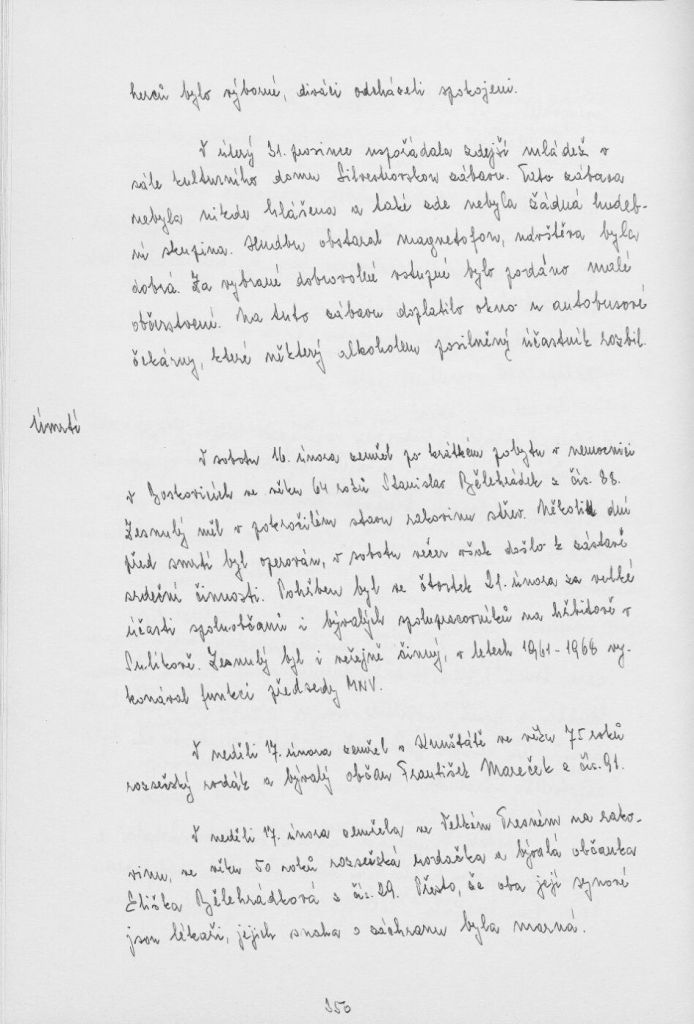 herců bylo výborné, diváci odcházeli spokojeni.
V úterý 31. prosince uspořádala zdejší mládež v
sále kulturního domu Silvestrovskou zábavu. Tato zábava
nebyla nikde hlášena a také zde nebyla žádná hudeb-
ní skupina. Hudbu obstaral magnetofon, návštěva byla
dobrá. Za vybrané dobrovolné vstupné bylo podáno malé
občerstvení. Na tuto zábavu doplatilo okno u autobusové
čekárny, které některý alkoholem posilněný účastník rozbil.
Úmrtí
V sobotu 16. února zemřel po krátkém pobytu v nemocnici
v Boskovicích ve věku 64 roků Stanislav Bělehrádek z čís. 88.
Zesnulý měl v pokročilém stavu rakovinu střev. Několik dní
před smrtí byl operován, v sobotu večer však došlo k zástavě
srdeční činnosti. Pohřben byl ve čtvrtek 21. února za velké
účasti spoluobčanů i bývalých spolupracovníků na hřbitově v
Sulíkově. Zesnulý byl i veřejně činný, v letech 1961-1968 vy-
konával funkci předsedy MNV.
V neděli 17. února zemřel v Kunštátě ve věku 75 roků
rozsečský rodák a bývalý občan František Mareček z čís. 91.
V neděli 17. února zemřela ve Velkém Tresném na rako-
vinu, ve věku 50 roků rozsečská rodačka a bývalá občanka
Eliška Bělehrádková z čís. 29. Přesto, že oba její synové
jsou lékaři, jejich snaha o záchranu byla marná.
350